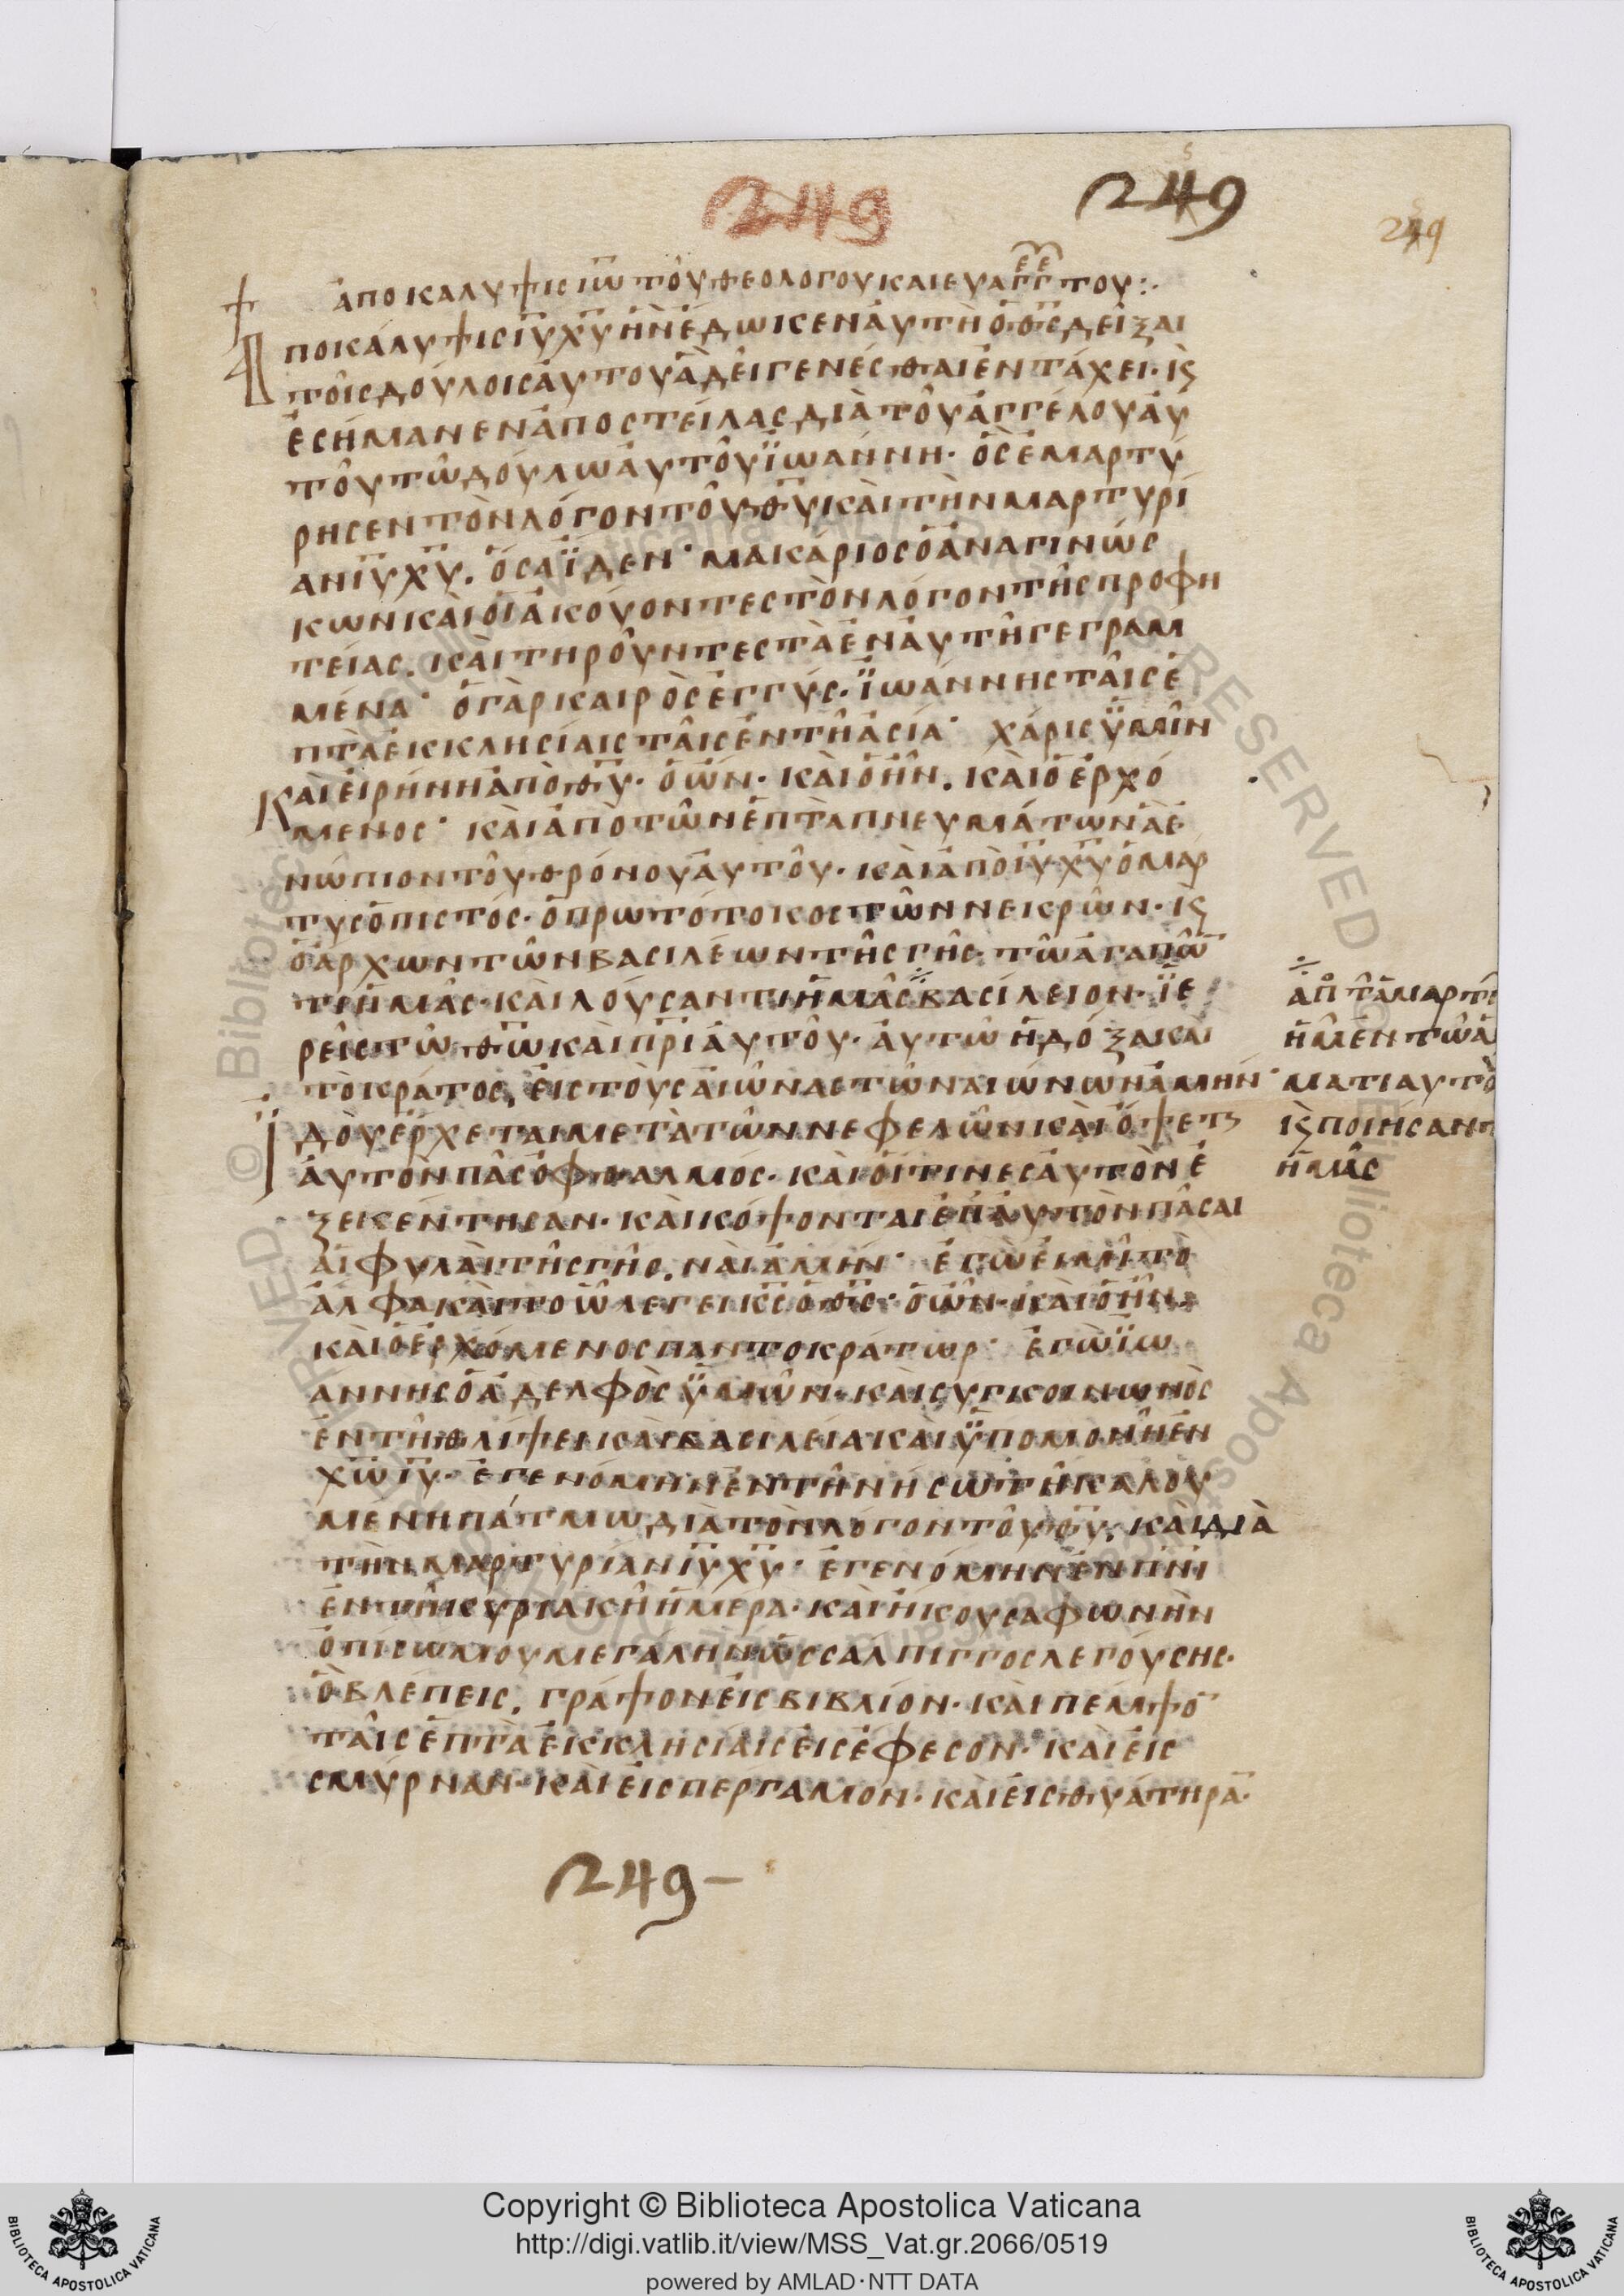 249 249 249
ἀποκαλυψις ιω τοῦ θεολογου και ευαγγτου:·
Ἀποκάλυψις ιυ χυ ἣν ἔδωκεν ἀυτῶ ὁ θς δεῖξαι
τοῖς δούλοις ἀυτου ἃ δεῖ γενέσθαι ἐν τάχει· κς
ἐσήμανεν ἀποστείλας διὰ τοῦ ἀγγέλου ἀυ
τοῦ τῶ δούλω ἀυτοῦ ϊωάννη· ὃς ἐμαρτύ
ρησεν τὸν λόγον τοῦ θυ καὶ τὴν μαρτυρί
αν ιυ χυ. ὅσα ϊδεν· μακάριος ὁ ἀναγινώς
κων καὶ οἱ ἀκούοντες τὸν λόγον τῆς προφη
τείας. καὶ τηροῦντες τὰ ἐν ἀυτῆ γεγραμ
μένα· ὁ γὰρ καιρὸς ἐγγύς. ϊωάννης ταῖς ἑ
πτὰ ἐκκλησίαις ταῖς ἐν τῆ ἀσία· χάρις ϋμῖν
Καὶ ἐιρήνη ἀπὸ θυ· ὁ ὢν· καὶ ὁ ἦν. καὶ ὁ ἐρχό
μενος· καὶ ἀπὸ τῶν ἑπτὰ πνευμάτων ἃ ἐ
νώπιον τοῦ θρόνου ἀυτοῦ· καὶ ἀπὸ ιυ χυ ὁ μαρ
τυς ὁ πιστός· ὁ πρωτότοκος τῶν νεκρῶν· κς
ὁ ἄρχων τῶν βασιλέων τῆς γῆς· τῶ ἀγαπῶ
τι ἡμᾶς· καὶ λούσαντι ἡμᾶς ÷ βασίλειον· ϊε
ρεῖς τῶ θω καὶ πρι ἀυτοῦ· ἀυτῶ ἡ δόξα και
τὸ κράτος, ἐις τοὺς ἀιῶνας τῶν αιώνων ἀμήν·
Ἰδοὺ ἔρχεται μετὰ τῶν νεφελῶν καὶ ὄψετς
ἀυτὸν πᾶς ὀφθαλμός· καὶ οἵτινες ἀυτὸν ἐ
ξεκέντησαν· καὶ κόψονται ἐπ ἀυτὸν πᾶσαι
ἁι φυλαὶ τῆς γῆς. ναὶ ἀμήν· ἐγώ ἐιμῖ τὸ
ἄλφα καὶ τὸ ὦ λέγει κς ὁ θς· ὁ ὢν· καὶ ὁ ἦν.
καὶ ὁ ἐρχόμενος παντοκράτωρ· ἐγὼ ϊω
αννης ὁ ἀδελφὸς ϋμῶν· και συγκοινωνὸς
ἐν τῆ θλίψει καὶ βασιλεία καὶ ϋπομονῆ ἐν
χω ιυ· ἐγενόμην ἐν τῆ νήσω τῆ καλου
μένη πάτμω διὰ τὸν λόγον τοῦ θυ, καὶ διὰ
τὴν μαρτυρίαν ιυ χυ· ἐγενόμην ἐν πνι
ἐν τῆ κυριακῆ ἡμερα· καὶ ἤκουσα φωνὴν
ὀπίσω μου μεγάλην ὡς σάλπιγγος λεγούσης·
ὃ βλέπεις, γράψον ἐις βιβλίον· καὶ πεμψο
ταῖς ἑπτὰ ἐκκλησίαις ἐις ἔφεσον· καὶ ἐις
σμύρναν· καὶ ἐις πέργαμον· καὶ ἐις θυάτηρα·
÷
ἀπ τ ἁμαρτι
ἡμῶν ἐν τῶ ἁι
ματι αυτο
κς ποιήσαντ
ἡμᾶς
249-
Copyright © Biblioteca Apostolica Vaticana
http://digi.vatlib.it/view/MSS_Vat.gr.2066/0519
powered by AMLAD·NTT DATA
BIBLIOTECA APOSTOLICA VATICANA
BIBLIOTECA APOSTOLICA VATICANA